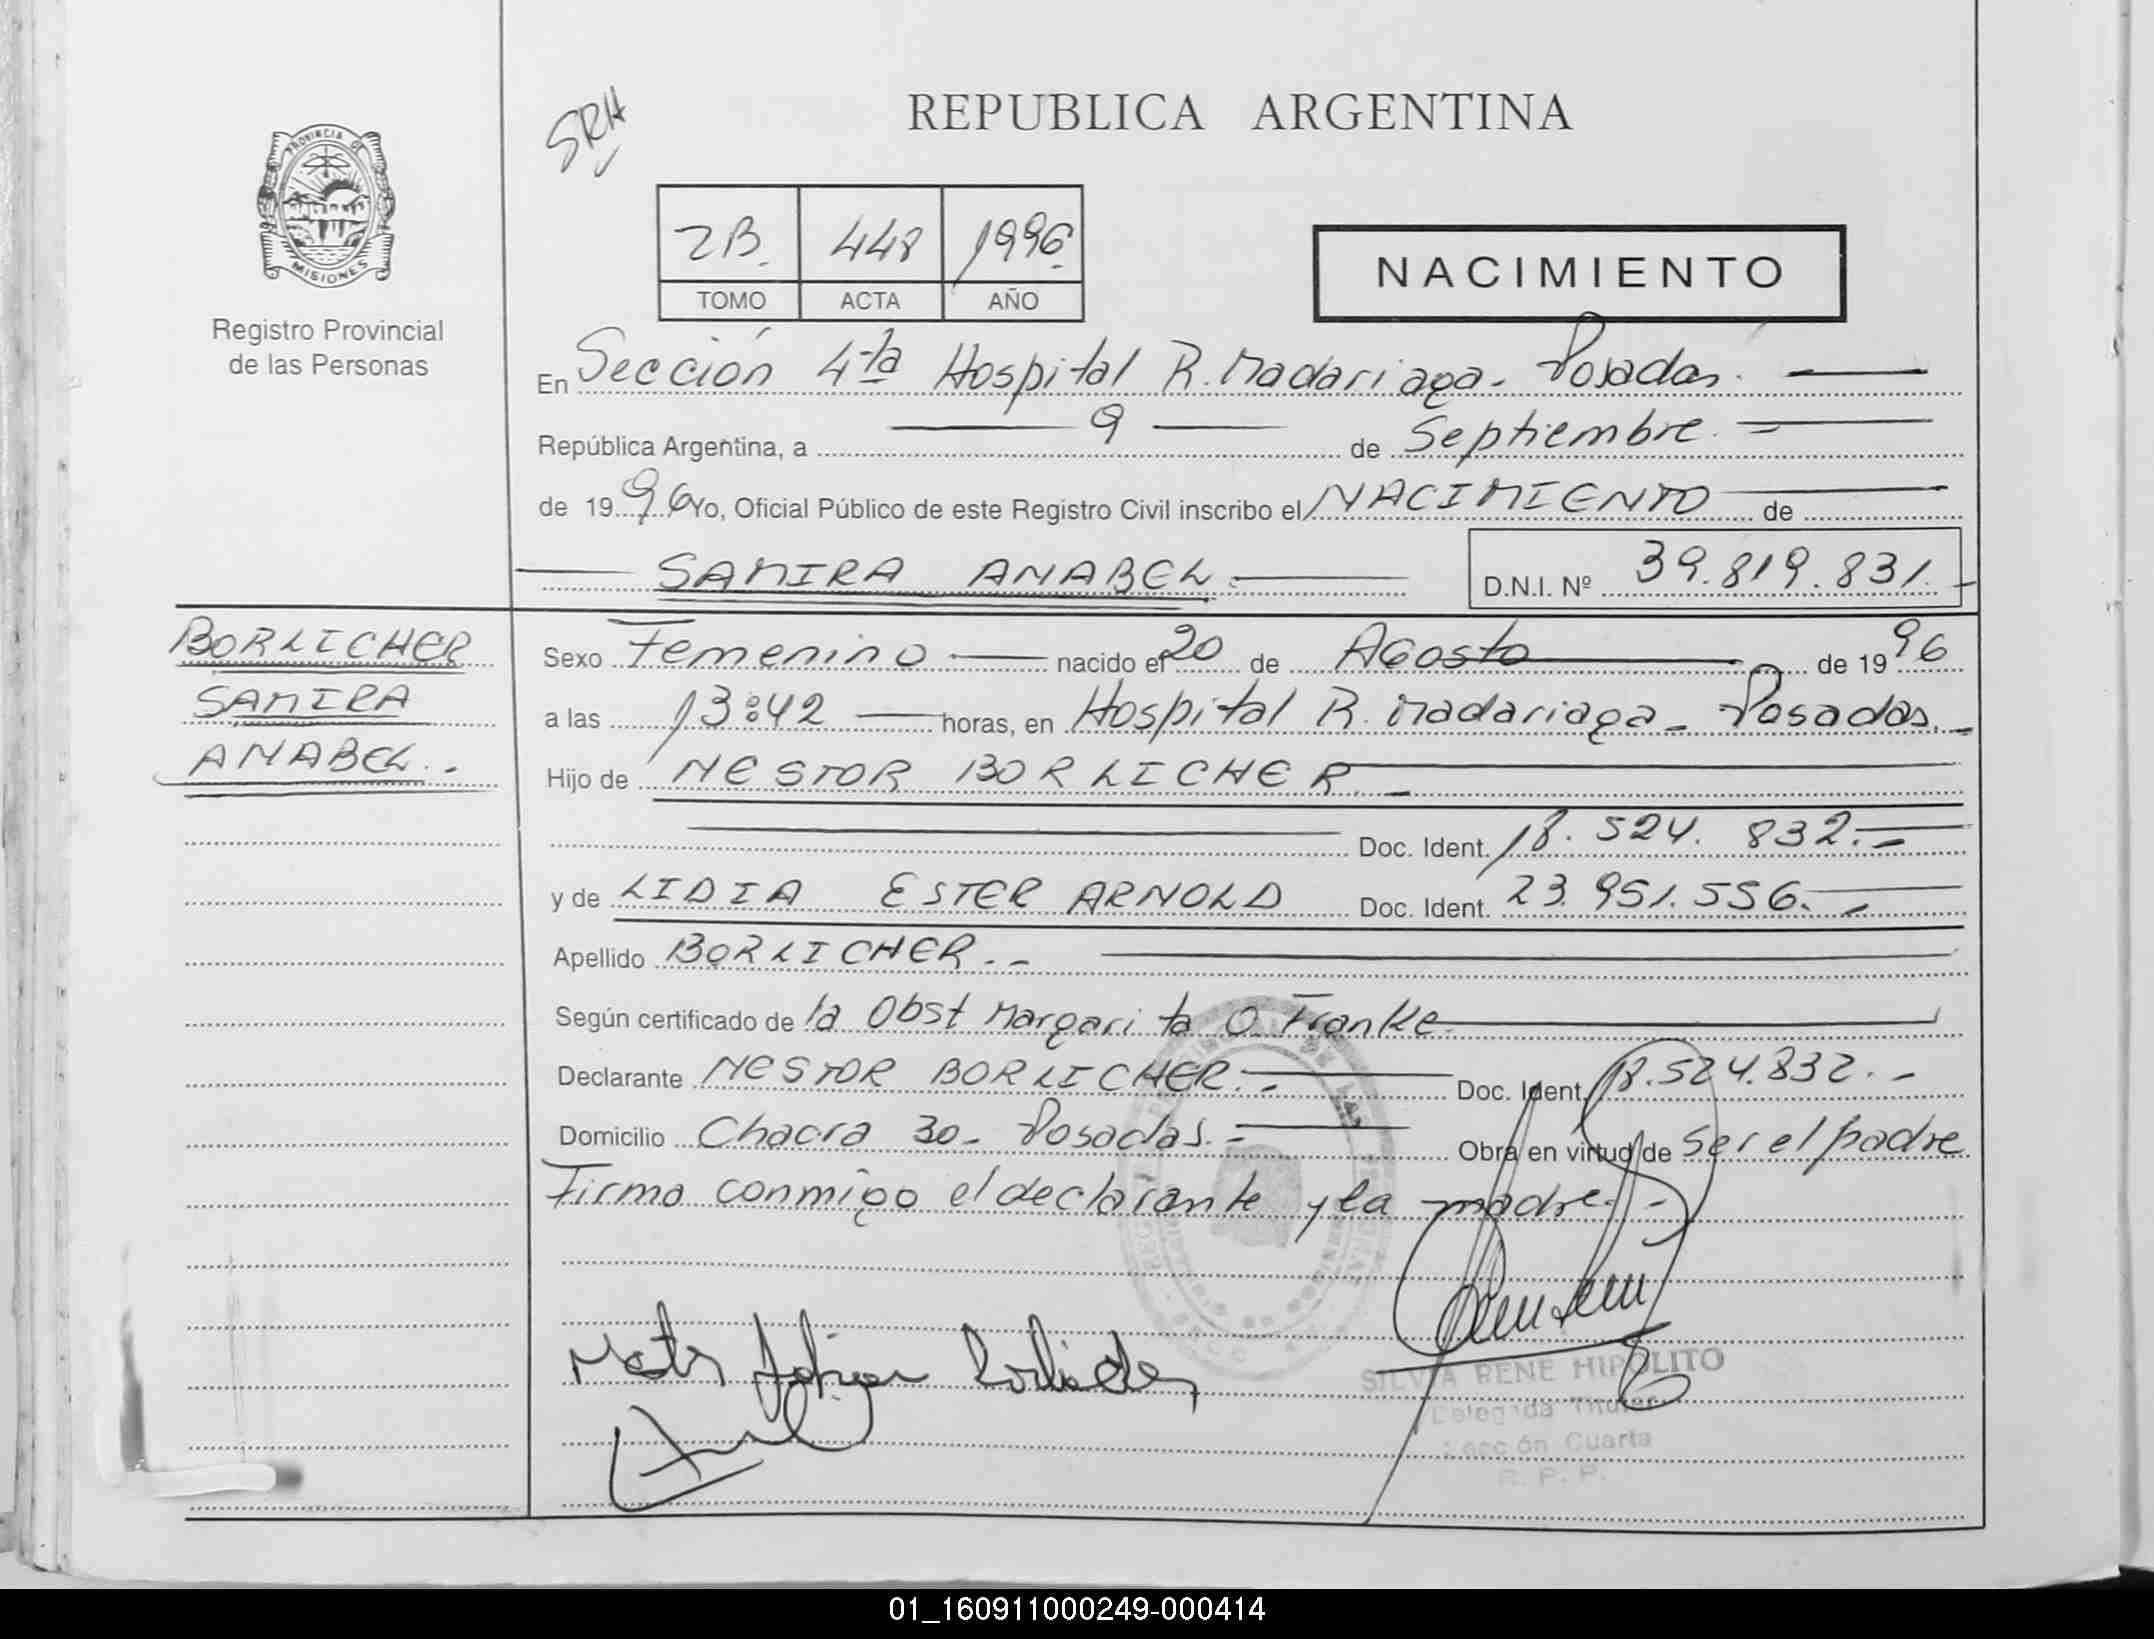 SRH
REPUBLICA ARGENTINA
PROVINCIA DE
MISIONES
Registro Provincial
de las Personas
2B. 448 1996.
TOMO ACTA AÑO
NACIMIENTO
En Sección 4ta Hospital R. Madariaga. Posadas.
República Argentina, a 9 de Septiembre.
de 1996 Yo, Oficial Público de este Registro Civil inscribo el NACIMIENTO de
SAMIRA ANABEL. D.N.I. Nº 39.819.831.
BORLICHER
SAMIRA
ANABEL.
Sexo Femenino nacido el 20 de Agosto de 1996
a las 13:42 horas, en Hospital R. Madariaga - Posadas.
Hijo de NESTOR BORLICHER.
Doc. Ident. 18.524.832.
y de LIDIA ESTER ARNOLD Doc. Ident. 23.951.556.
Apellido BORLICHER.
Según certificado de la Obst Margarita O. Franke.
Declarante NESTOR BORLICHER. Doc. Ident. 18.524.832.
Domicilio Chacra 30 - Posadas. Obra en virtud de ser el padre
Firma conmigo el declarante y la madre.
SILVIA RENE HIPOLITO
Delegada Titular
Sección Cuarta
R. P. P.
01_160911000249-000414